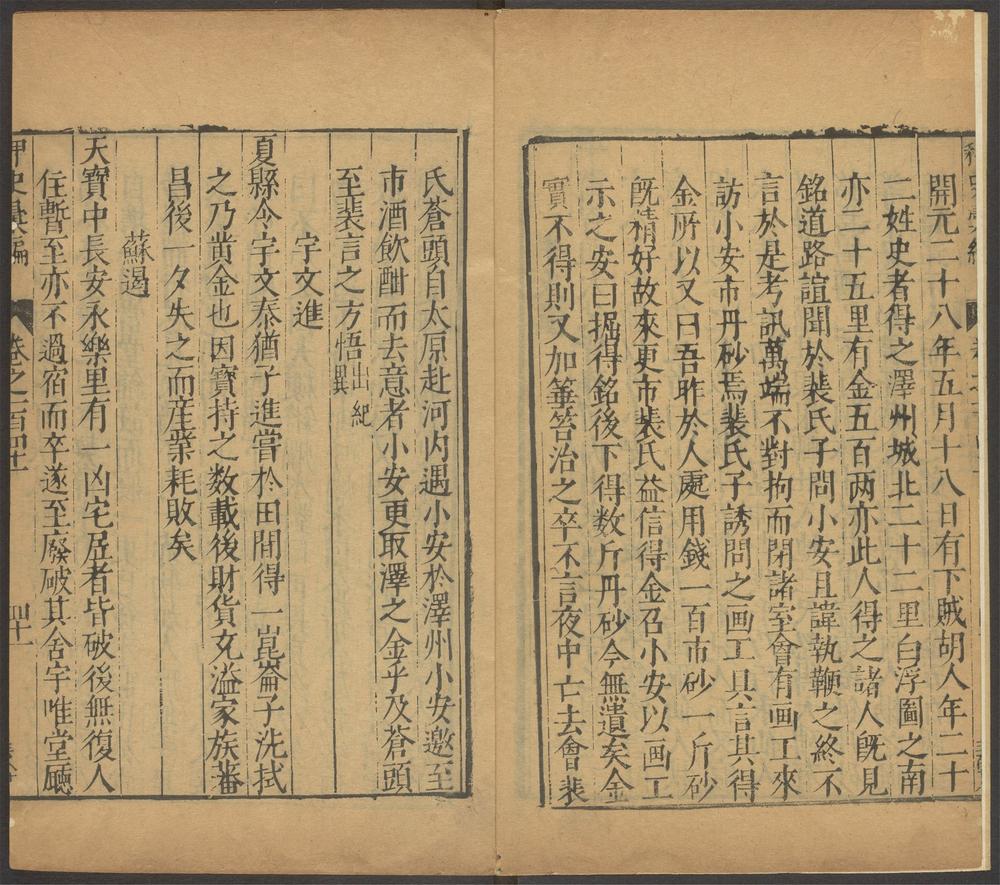 開元二十八年五月十八日有下賊胡人年二十
二姓史者得之澤州城北二十二里白浮圖之南
亦二十五里有金五百两亦此人得之諸人旣見
銘道路誼聞於裴氏子問小安且諱執鞭之終不
言於是考訊萬端不對拘而閉諸室會有画工來
訪小安市丹砂焉裴氏子誘問之画工具言其得
金所以又曰吾昨於人處用錢一百市砂一斤砂
旣精好故來更市裴氏益信得金召小安以画工
示之安曰掘得銘後下得数斤丹砂今無遺矣金
實不得則又加箠笞治之卒不言夜中亡去會裴
氏蒼頭自太原赴河内遇小安於澤州小安邀至
市酒飲酣而去意者小安更取澤之金乎及蒼頭
至裴言之方悟出紀異
宇文進
夏縣令宇文泰猶子進嘗於田間得一崑崙子洗拭
之乃凿金也因寳持之数載後財貨充溢家族蕃
昌後一夕失之而産業耗敗矣
蘇遏
天寶中長安永樂里有一凶宅居者皆破後無復人
住暫至亦不過宿而卒遂至廢破其舍宇唯堂廳
史彙編
卷之百四十
四十一